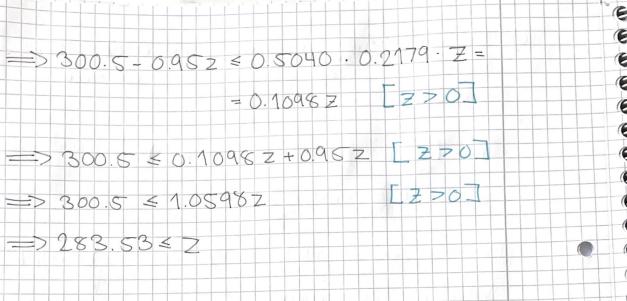 ⟹ 300.5 - 0.95z ≤ 0.5040 · 0.2179 · z =
= 0.1098z [z > 0]
⟹ 300.5 ≤ 0.1098z + 0.95z [z > 0]
⟹ 300.5 ≤ 1.0598z [z > 0]
⟹ 283.53 ≤ z